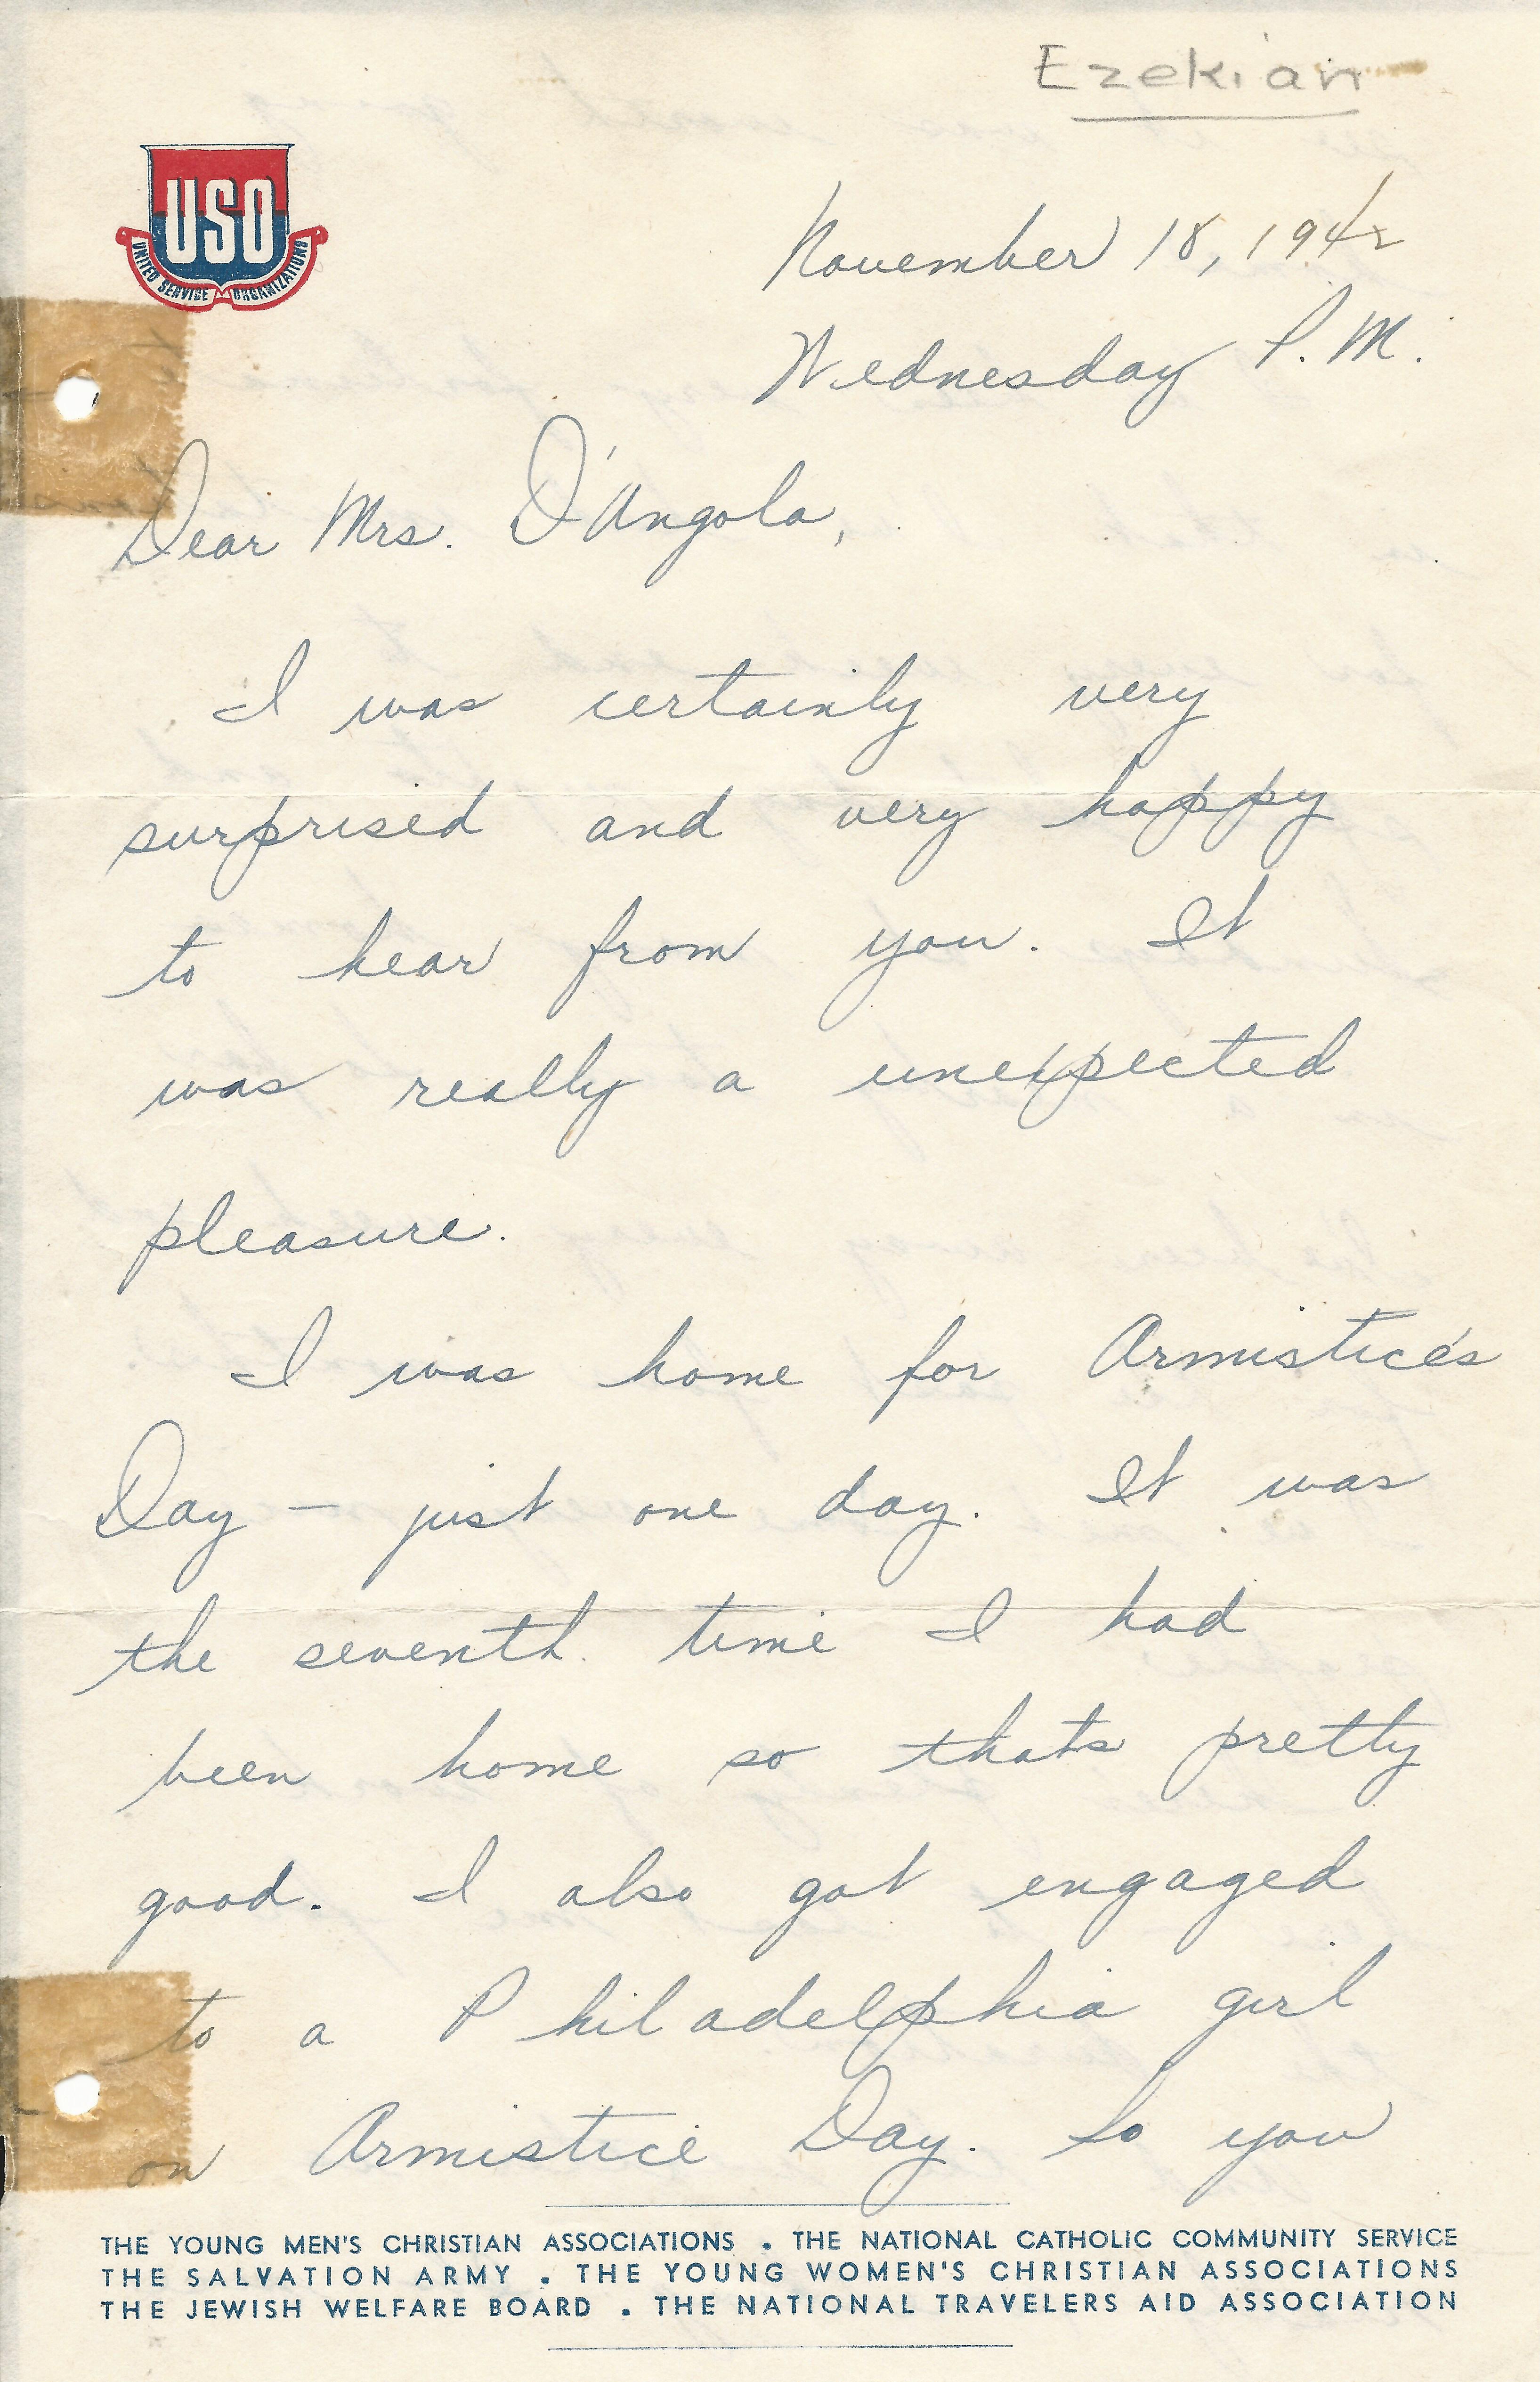 Ezekian
USO
UNITED SERVICE ORGANIZATIONS
November 18, 1942
Wednesday P.M.
Dear Mrs. D'Angola,
I was certainly very
surprised and very happy
to hear from you. It
was really a unexpected
pleasure.
I was home for Armistice's
Day – just one day. It was
the seventh time I had
been home so thats pretty
good. I also got engaged
to a Philadelphia girl
on Armistice Day. So you
THE YOUNG MEN'S CHRISTIAN ASSOCIATIONS • THE NATIONAL CATHOLIC COMMUNITY SERVICE
THE SALVATION ARMY • THE YOUNG WOMEN'S CHRISTIAN ASSOCIATIONS
THE JEWISH WELFARE BOARD • THE NATIONAL TRAVELERS AID ASSOCIATION